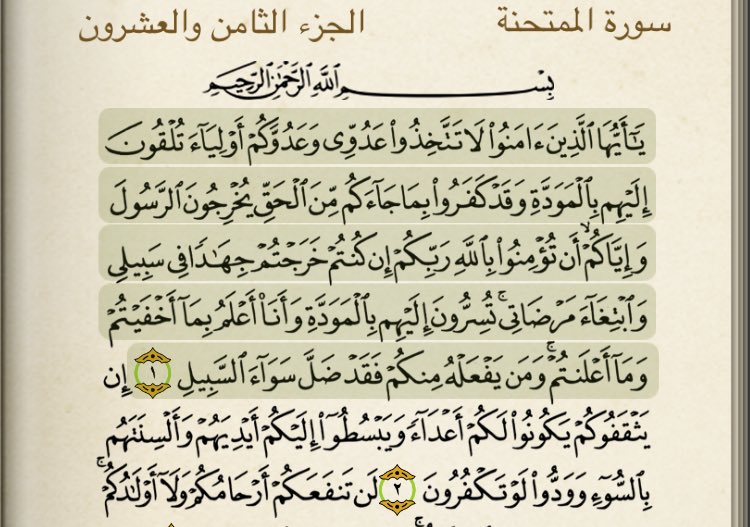 سورة الممتحنة الجزء الثامن والعشرون
بِسْمِ ٱللَّهِ ٱلرَّحْمَٰنِ ٱلرَّحِيمِ
يَٰٓأَيُّهَا ٱلَّذِينَ ءَامَنُوا۟ لَا تَتَّخِذُوا۟ عَدُوِّى وَعَدُوَّكُمْ أَوْلِيَآءَ تُلْقُونَ
إِلَيْهِم بِٱلْمَوَدَّةِ وَقَدْ كَفَرُوا۟ بِمَا جَآءَكُم مِّنَ ٱلْحَقِّ يُخْرِجُونَ ٱلرَّسُولَ
وَإِيَّاكُمْ ۙ أَن تُؤْمِنُوا۟ بِٱللَّهِ رَبِّكُمْ إِن كُنتُمْ خَرَجْتُمْ جِهَٰدًا فِى سَبِيلِى
وَٱبْتِغَآءَ مَرْضَاتِى ۚ تُسِرُّونَ إِلَيْهِم بِٱلْمَوَدَّةِ وَأَنَا۠ أَعْلَمُ بِمَآ أَخْفَيْتُمْ
وَمَآ أَعْلَنتُمْ ۚ وَمَن يَفْعَلْهُ مِنكُمْ فَقَدْ ضَلَّ سَوَآءَ ٱلسَّبِيلِ ١ إِن
يَثْقَفُوكُمْ يَكُونُوا۟ لَكُمْ أَعْدَآءً وَيَبْسُطُوٓا۟ إِلَيْكُمْ أَيْدِيَهُمْ وَأَلْسِنَتَهُم
بِٱلسُّوٓءِ وَوَدُّوا۟ لَوْ تَكْفُرُونَ ٢ لَن تَنفَعَكُمْ أَرْحَامُكُمْ وَلَآ أَوْلَٰدُكُمْ ۚ